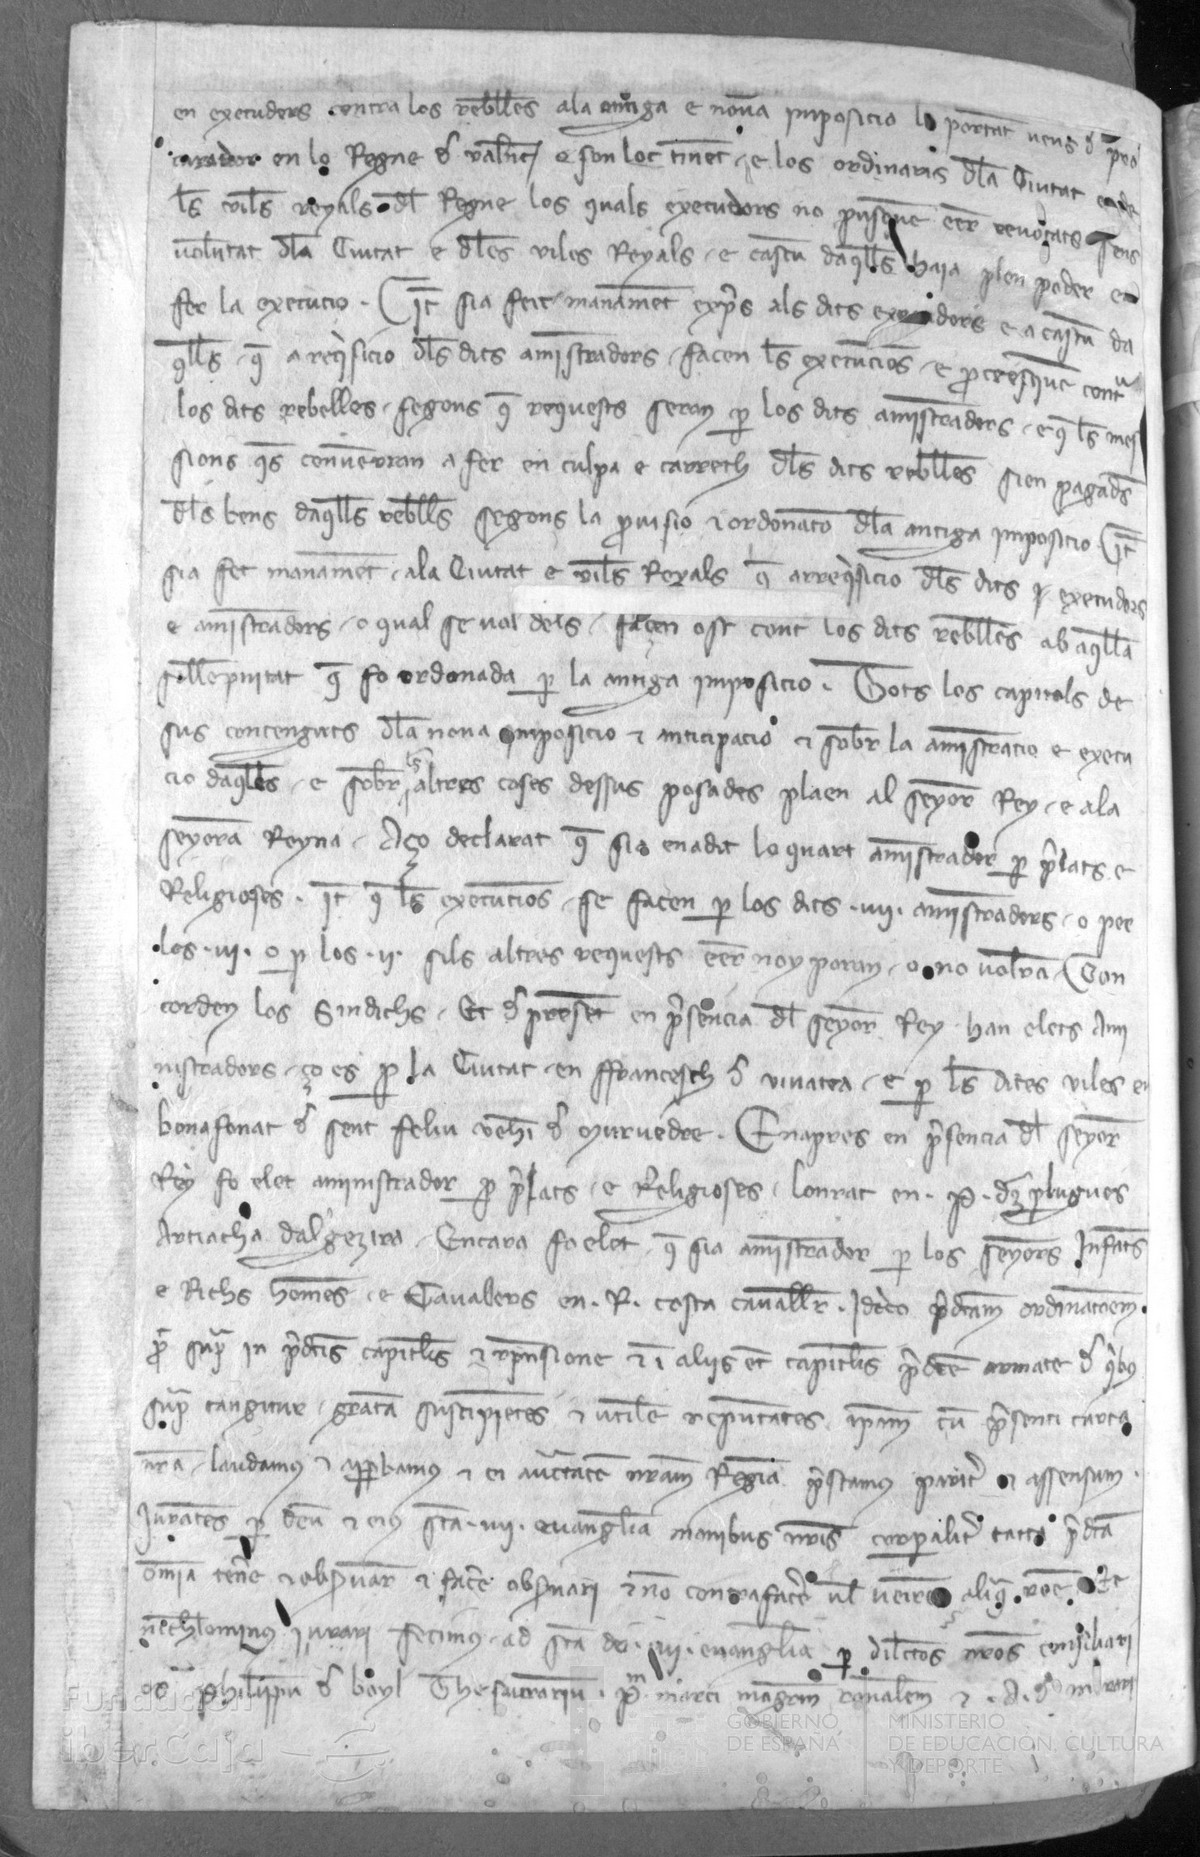 en executors contra los rebelles ala antiga e nova imposicio lo portant veus d pro
curador en lo Regne d valenc e son loc tinent e los ordinaris dla Ciutat e de
ls viles reyals dl Regne los quals executors no pusquen eser revocats sens
voluntat dla Ciutat e dles viles Reyals e cascu daqlls haja plen poder en
fer la execucio. It sia feit manament expres als dits executors e a cascu da
qlls q a reqisicio dls dits amistradors facen ls execucions e procresquen contra
los dits rebelles segons q requests seran p los dits amistradors e q ls mes
sions qs convenran a fer en culpa e carrech dls dits rebelles sien pagades
dls bens daqlls rebells segons la provisio & ordonacio dla antiga imposicio It
sia fet manament ala Ciutat e viles Reyals q arreqisicio dls dits executors
e amistradors o qual se vol dels facen ost cont los dits rebelles ab aqlla
sollepnitat q fo ordonada p la antiga imposicio. Tots los capitols de
sus contenguts dla nova imposicio & anticipacio & sobr la amistracio e execu
cio daqlles e sobr ls altres coses dessus posades plaen al seyor Rey e ala
seyora Reyna Aço declarat q sia enadit lo quart amistrador p prelats e
Religioses. It q ls execucions se facen p los dits .iiii. amistradors o per
los .iii. o p los .ii. sils altres requests eser noy poran o no volran Con
corden los Sindichs Et d present en presencia dl seyor Rey han elets Ami
nistradors ço es p la Ciutat en ffrancesch d vinatea e p ls dites viles en
bonafonat d sent feliu vehi d Murvedre. Enapres en presencia dl seyor
Rey fo elet aministrador p prelats e Religioses lonrat en . P. d
Artiacha dalgezira Encara fo elet q sia amistrador p los seyors Infants
e Richs homes e Cavallers en. R. costa cavaller. Ideo predictam ordinacoem
pro supra in predictis capitlis & responsione & i aliis et capitlis d qibus
supra tangitur gratam suscipientes & utile reputantes ipam cu presenti carta
nra laudamus & approbamus & ei auctitate nram Regia prestamus pariter & assensum.
Jurantes p deu & eius sta .iiii. evanglia manibus nris corpaliter tacta predicta
omia tenere & observar & facere observari & no contrafacere vl venire aliqa roe Et
nichlominus jurari fecimus ad sta di .iiii. evanglia p dilectos nros consiliari
os Philippu d boyl Thesaurariu. P. marci magrm ronalem & . A. d
Fundación
iberCaja
GOBIERNO
DE ESPAÑA
MINISTERIO
DE EDUCACIÓN, CULTURA
Y DEPORTE